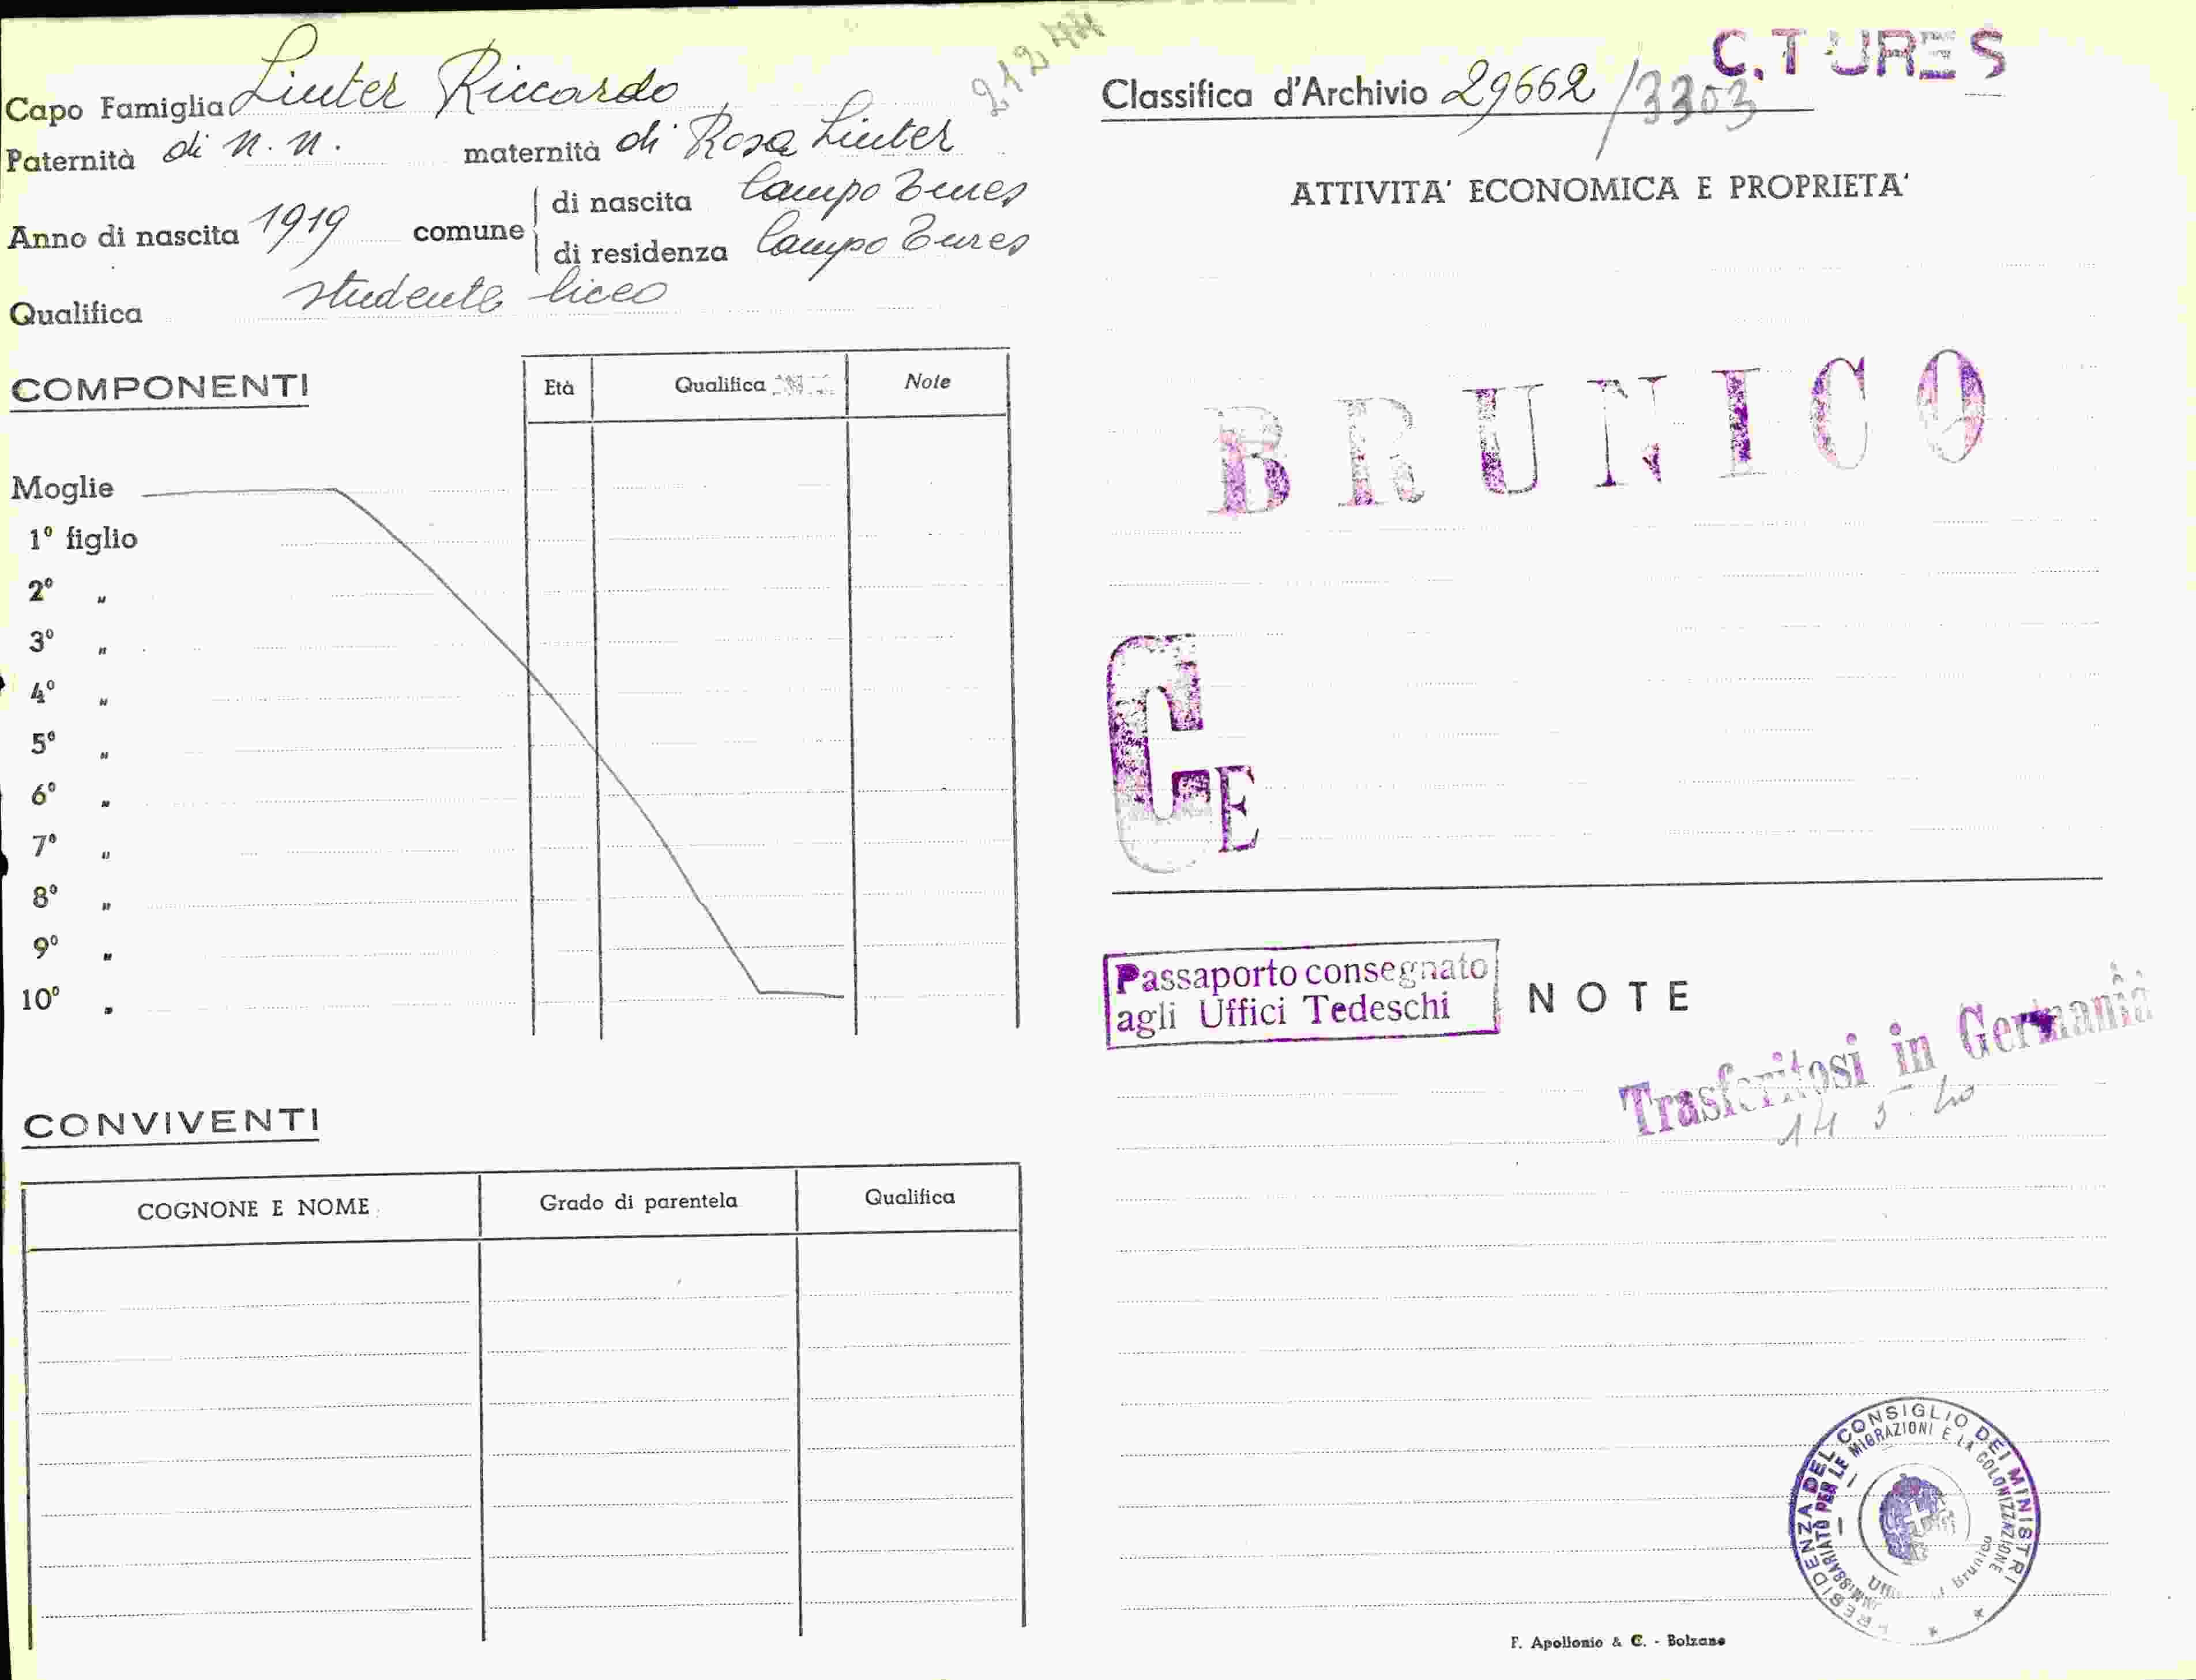 Capo Famiglia Liuter Riccardo
21244
Paternità di n. n. maternità di Rosa Liuter
Anno di nascita 1919 comune di nascita Campo Tures
di residenza Campo Tures
Qualifica studente liceo
COMPONENTI
Età Qualifica Note
Moglie
1º figlio
2º "
3º "
4º "
5º "
6º "
7º "
8º "
9º "
10º "
CONVIVENTI
COGNONE E NOME Grado di parentela Qualifica
C.TURES
Classifica d'Archivio 29662/3303
ATTIVITA' ECONOMICA E PROPRIETA'
BRUNICO
C E
Passaporto consegnato
agli Uffici Tedeschi
NOTE
Trasferitosi in Germania
14 5. 40
PRESIDENZA DEL CONSIGLIO DEI MINISTRI
COMMISSARIATO PER LE MIGRAZIONI E LA COLONIZZAZIONE
Brunico
F. Apollonio & C. - Bolzano